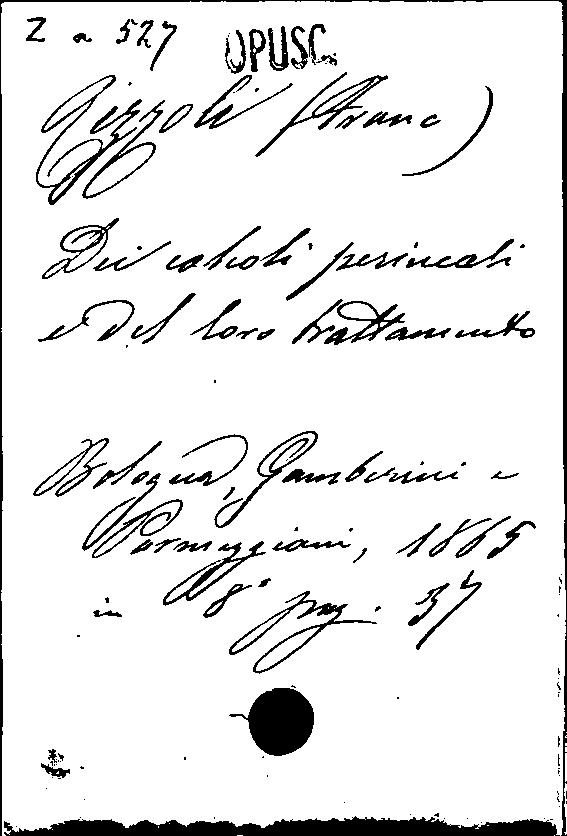 Z a 527 OPUSC.
Rizzoli (Franc)
Dei calcoli perineali
e del loro trattamento
Bologna, Gamberini e
Parmeggiani, 1865
in 8° pag. 37